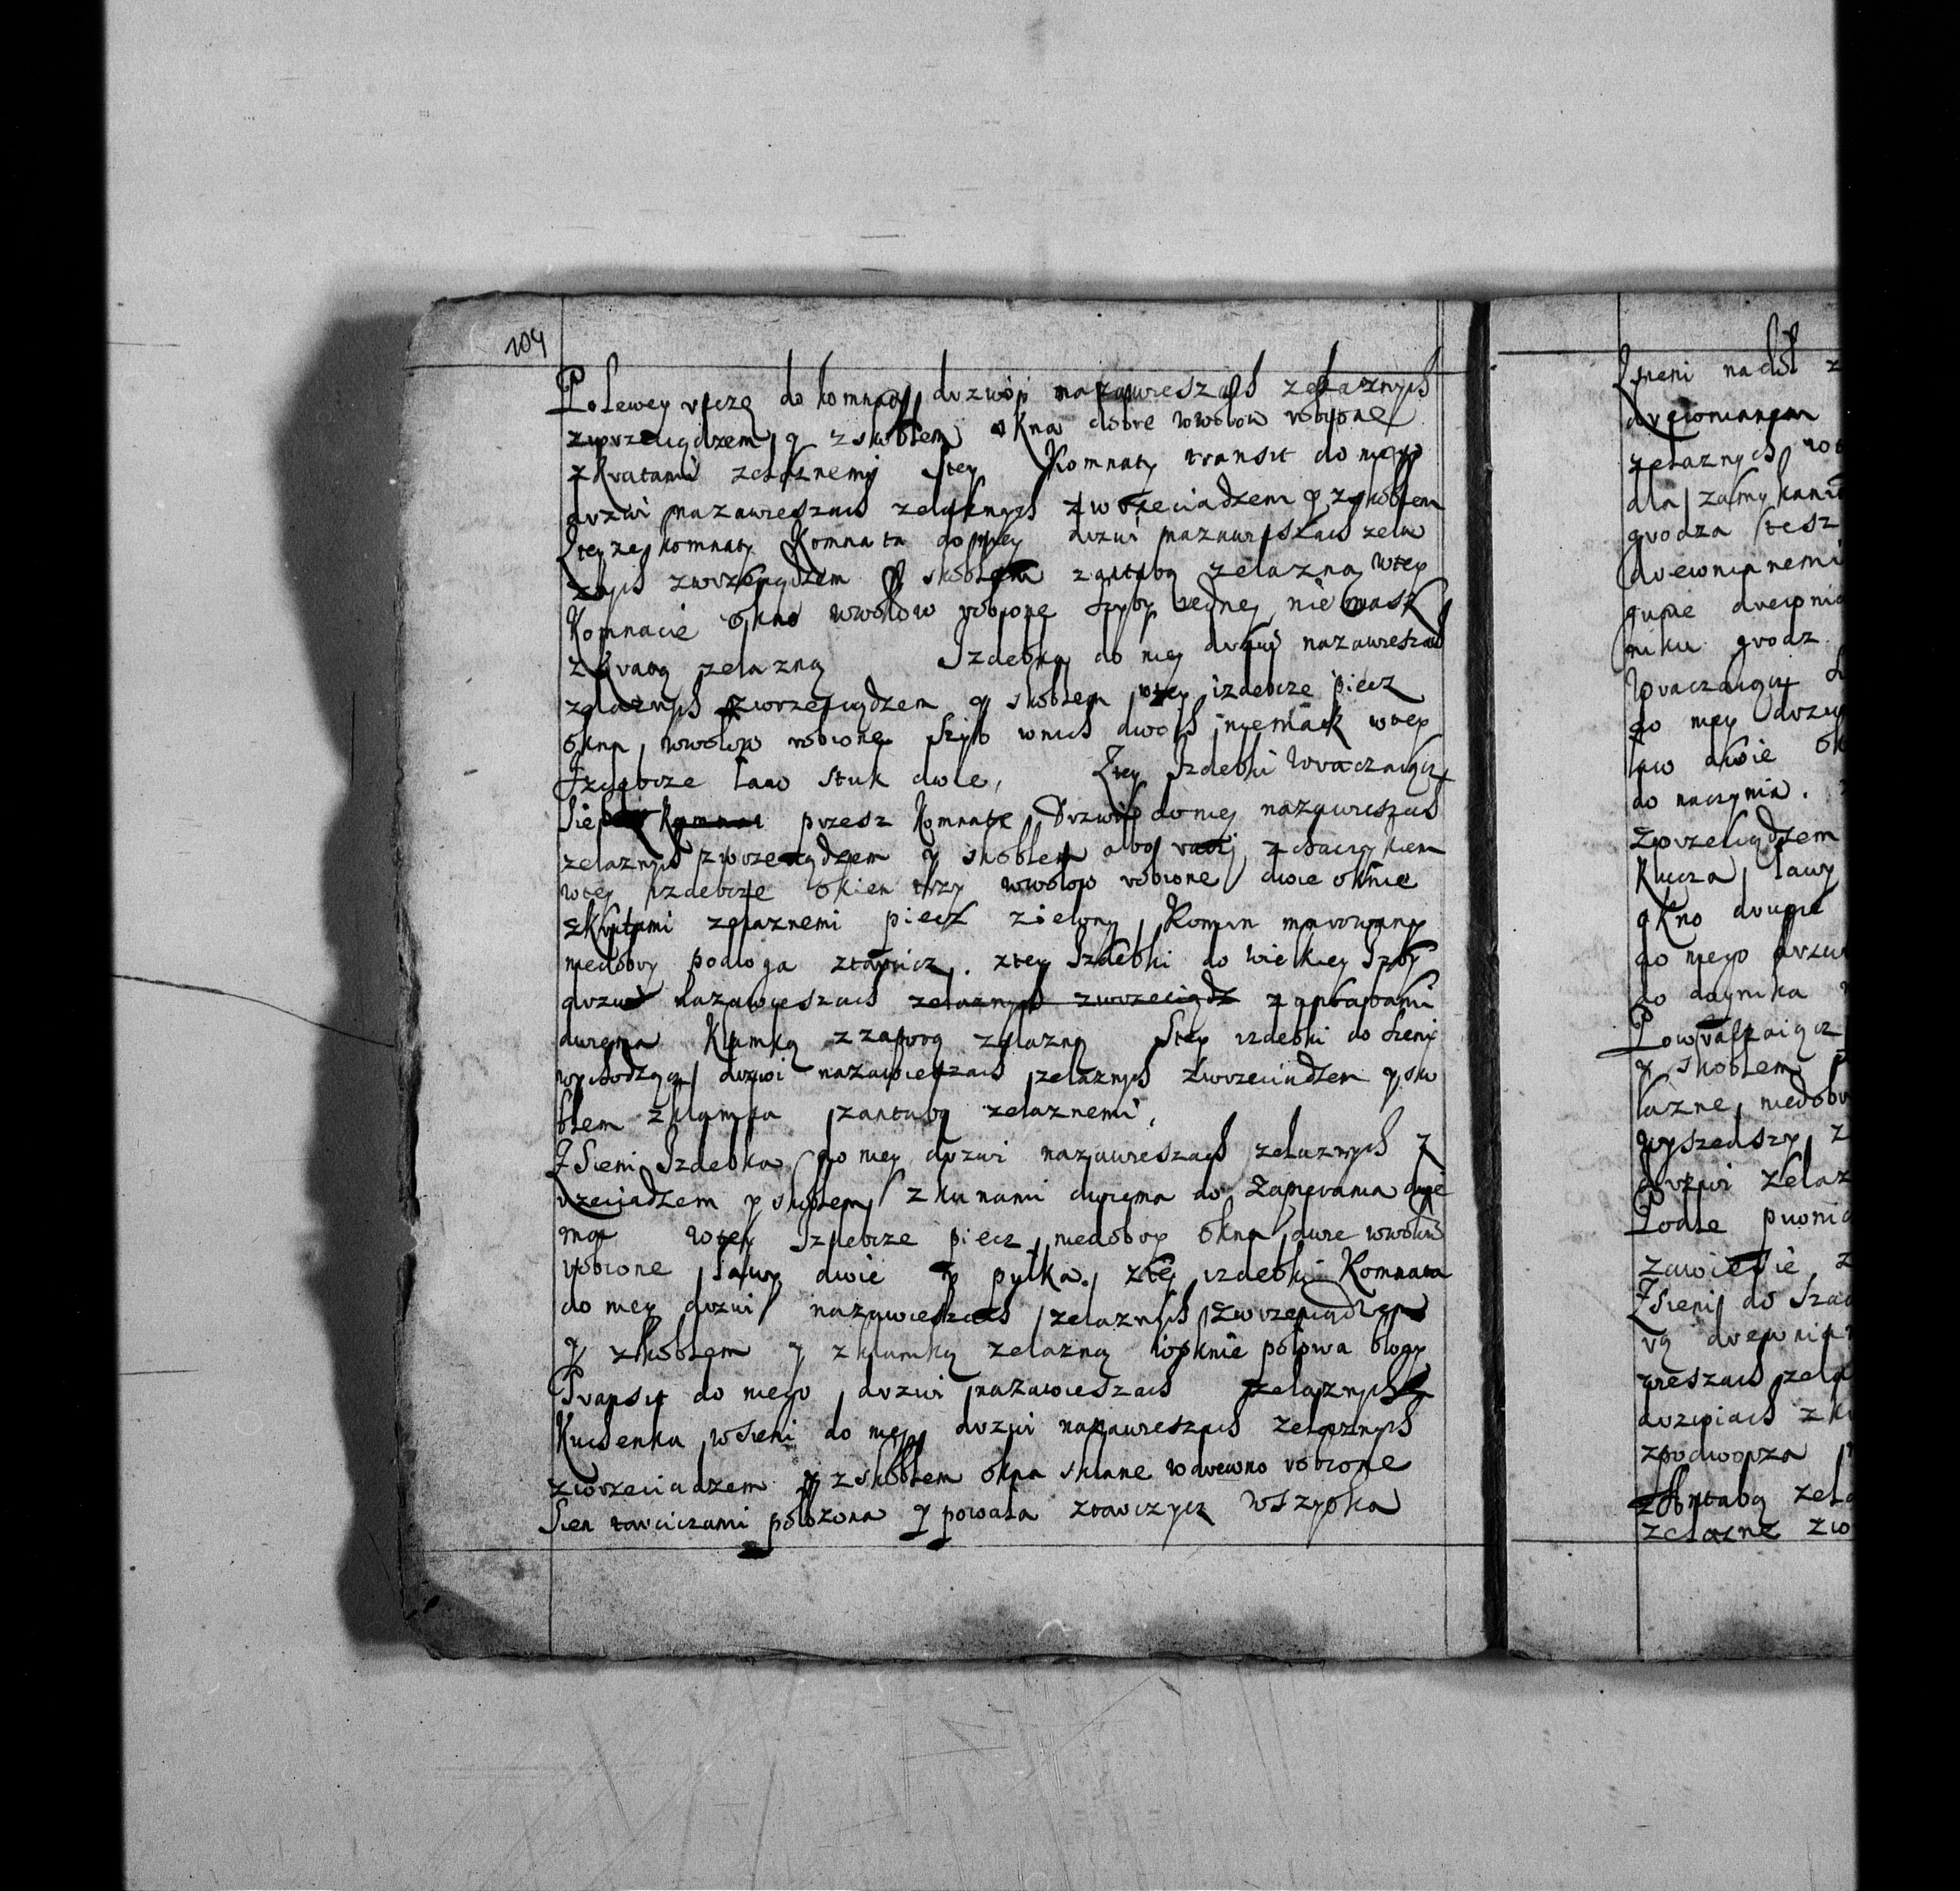 104
Polewey ręcze do komnaty drzwi nazawieszach zelaznych
zwrzeciądzem y zskoblem okna dobre wwołow robione
zkratami zelaznemi Stey Komnaty transit do niego
drzwi nazawieszach zelaznych zwrzeciadzem y zskoblem
Zteyzey komnaty Komnata do niey drzwi nazawieszach zela
znych zwrzeciądzem y skoblem zantabą zelazną wtey
Komnacie okno wwołow robione szyby iedney niemasz
zkratą zelazną Izdebka do niey drzwi nazawieszach
zelaznych zwrzeciądzem y skoblem wtey izdebcze piecz
okna wwołow robione szyb wnich dwoch niemasz wtey
Izdebcze law stuk dwie, Ztey Izdebki Wracaiącz
Sie przesz Komnate Drzwi doniey nazawieszach
zelaznych zwrzeciądzem y skoblem albo raczj zchaczykiem
wtey izdebcze okien trzy wwołow robione dwie oknie
zkratami zelaznemi piecz zielony, Komin murowany
niedobry podłoga ztarcicz. ztey Izdebki do wielkiey Izby
drzwi nazawieszach zelaznych zwrzeciądz zantabami
dwiema Klamką zzaporą zelazną Stey izdebki do Sieni
wychodzącz drzwi nazawieszach zelaznych zwrzeciadzem y sko
blem zklamka zantabą zelaznemi,
ZSieni Izdebka do niey drzwi nazawieszach zelaznych z
rzeciadzem y skoblem zkunami dwiema do zapierania dwie
ma wtey Izdebcze piecz niedobry okna dwie wwołow
robione ławy dwie y pułka. ztey izdebki Komnata
do niey drzwi nazawieszach zelaznych zwrzeciądzem
y zskoblem y zklamką zelazną woknie połowa błony
Transit do niego drzwi nazawieszach zelaznych
Kuchenka wsieni do niey drzwi nazawieszach zelaznych
zwrzeciadzem y zskoblem okna sklane wdrewno robione
Sien tarciczami położona y powała ztarczycz wszytka
Zsieni nadół z
drewnianem
zelaznych
dla zamykania
grodza tesz
drewnianemi
niku grodz
Wracaiącz
do niey drzwi
law dwie
do naczynia.
zwrzeciądzem
Klucza ławy
okno drugie
do niego drzwi
Powracaiącz
y skoblem
lazne niedobr
wyszedszy z
drzwi zelaz
Podle
zawiesie z
Zsieni do
wieszach zela
drzwiach zk
zpodworza
zantabą zela
zelazne zw